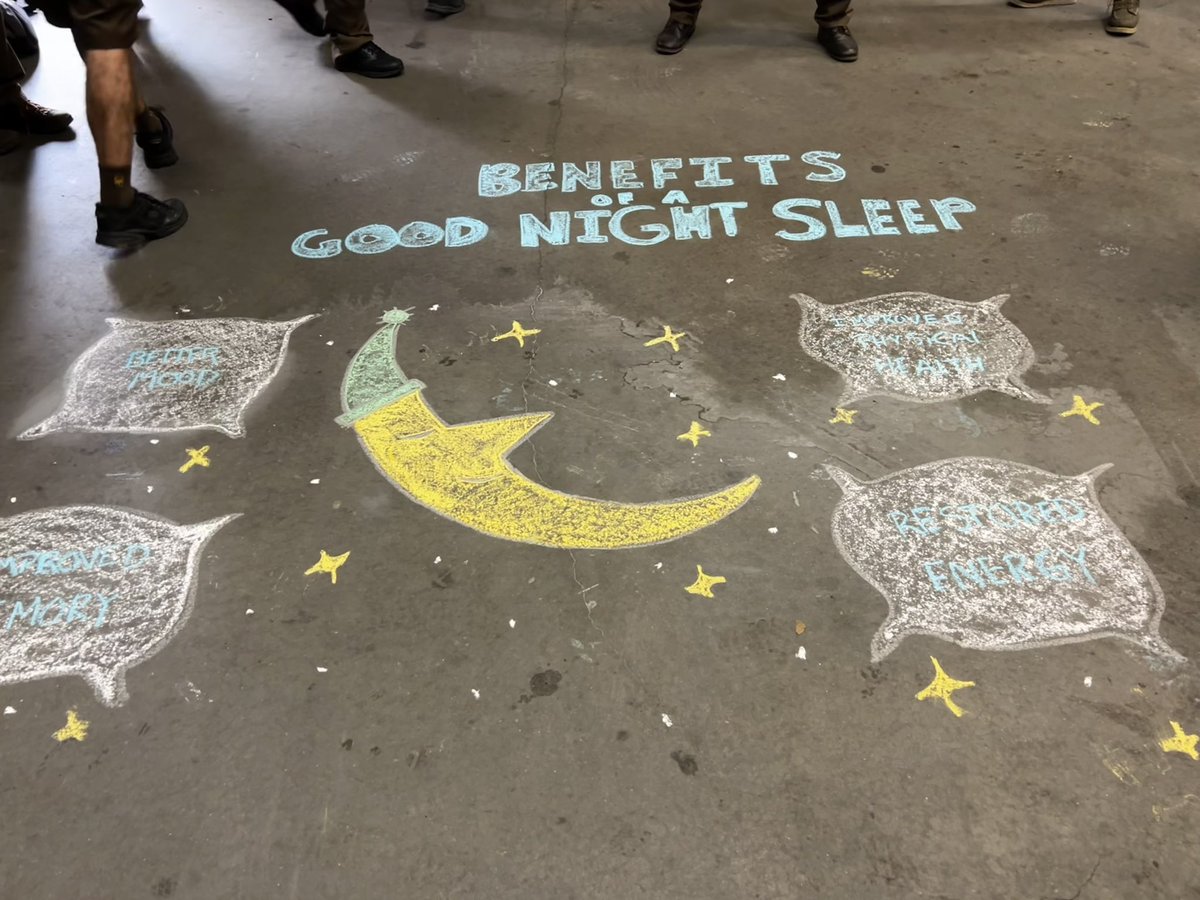 BENEFITS
OF A
GOOD NIGHT SLEEP
BETTER
MOOD
IMPROVED
PHYSICAL
HEALTH
MPROVED
MORY
RESTORED
ENERGY